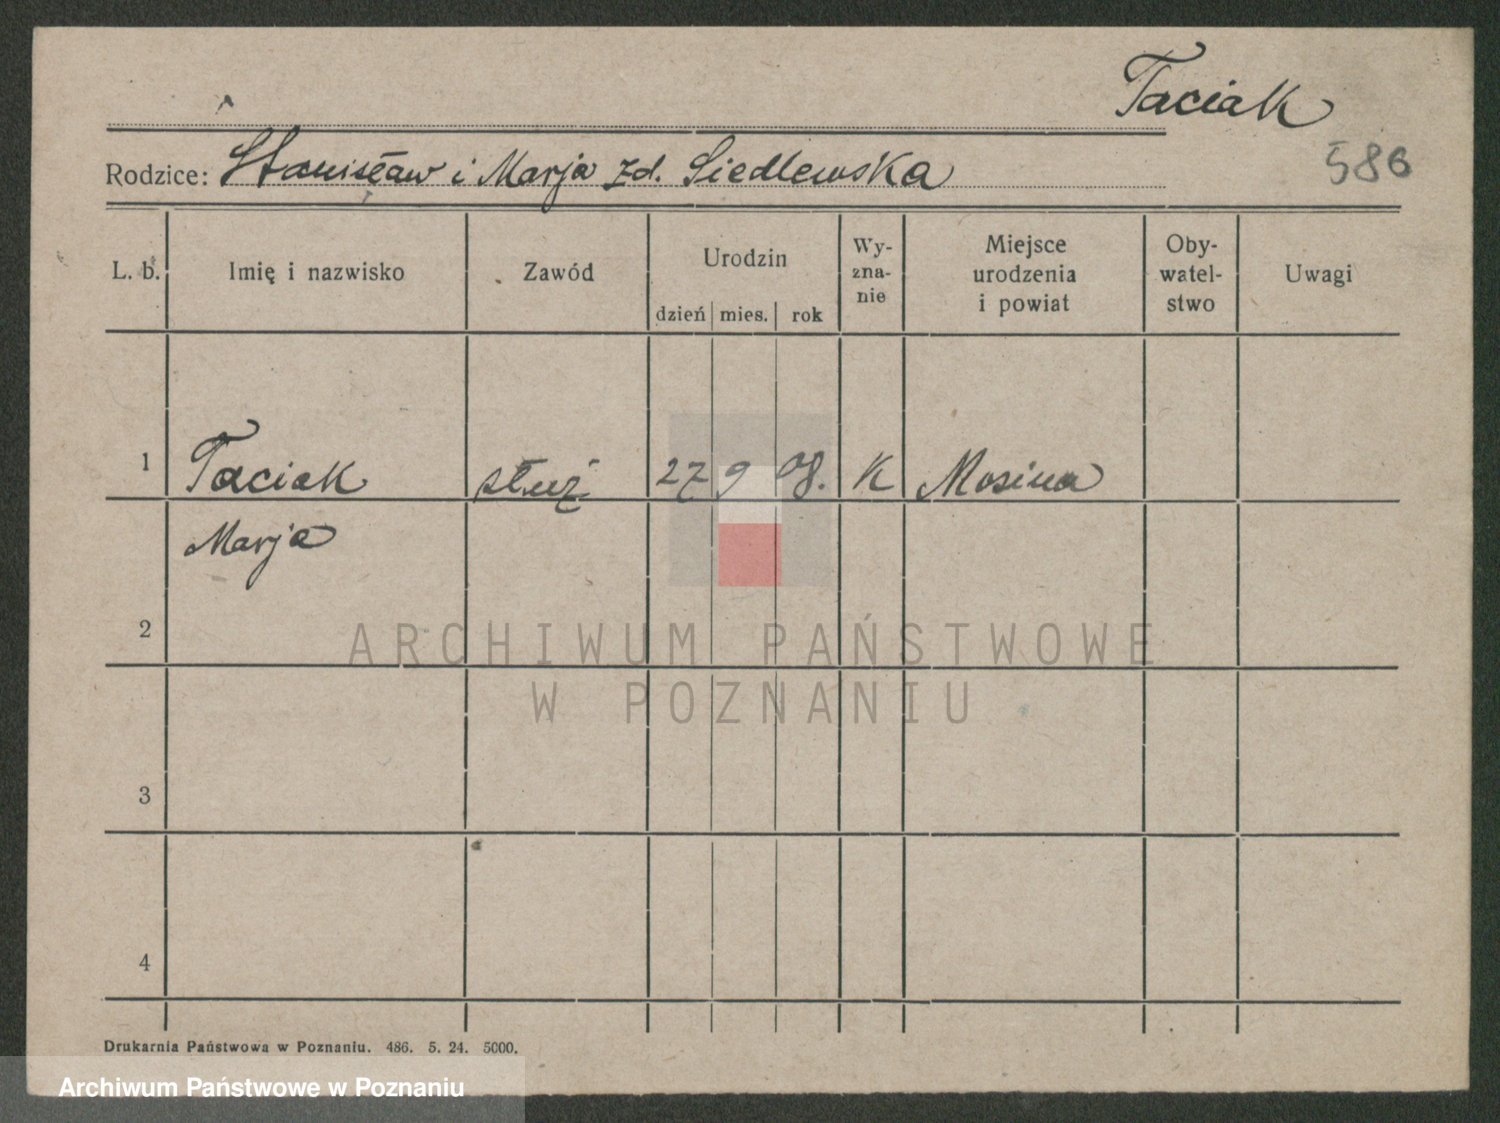 Taciak
586
Rodzice: Stanisław i Marja zd. Siedlewska
L. b. Imię i nazwisko Zawód Urodzin dzień mies. rok Wy-zna-nie Miejsce urodzenia i powiat Oby-watel-stwo Uwagi
1 Taciak służ 27 9 08. K Mosina
Marja
2
ARCHIWUM PAŃSTWOWE
W POZNANIU
3
4
Drukarnia Państwowa w Poznaniu. 486. 5. 24. 5000.
Archiwum Państwowe w Poznaniu